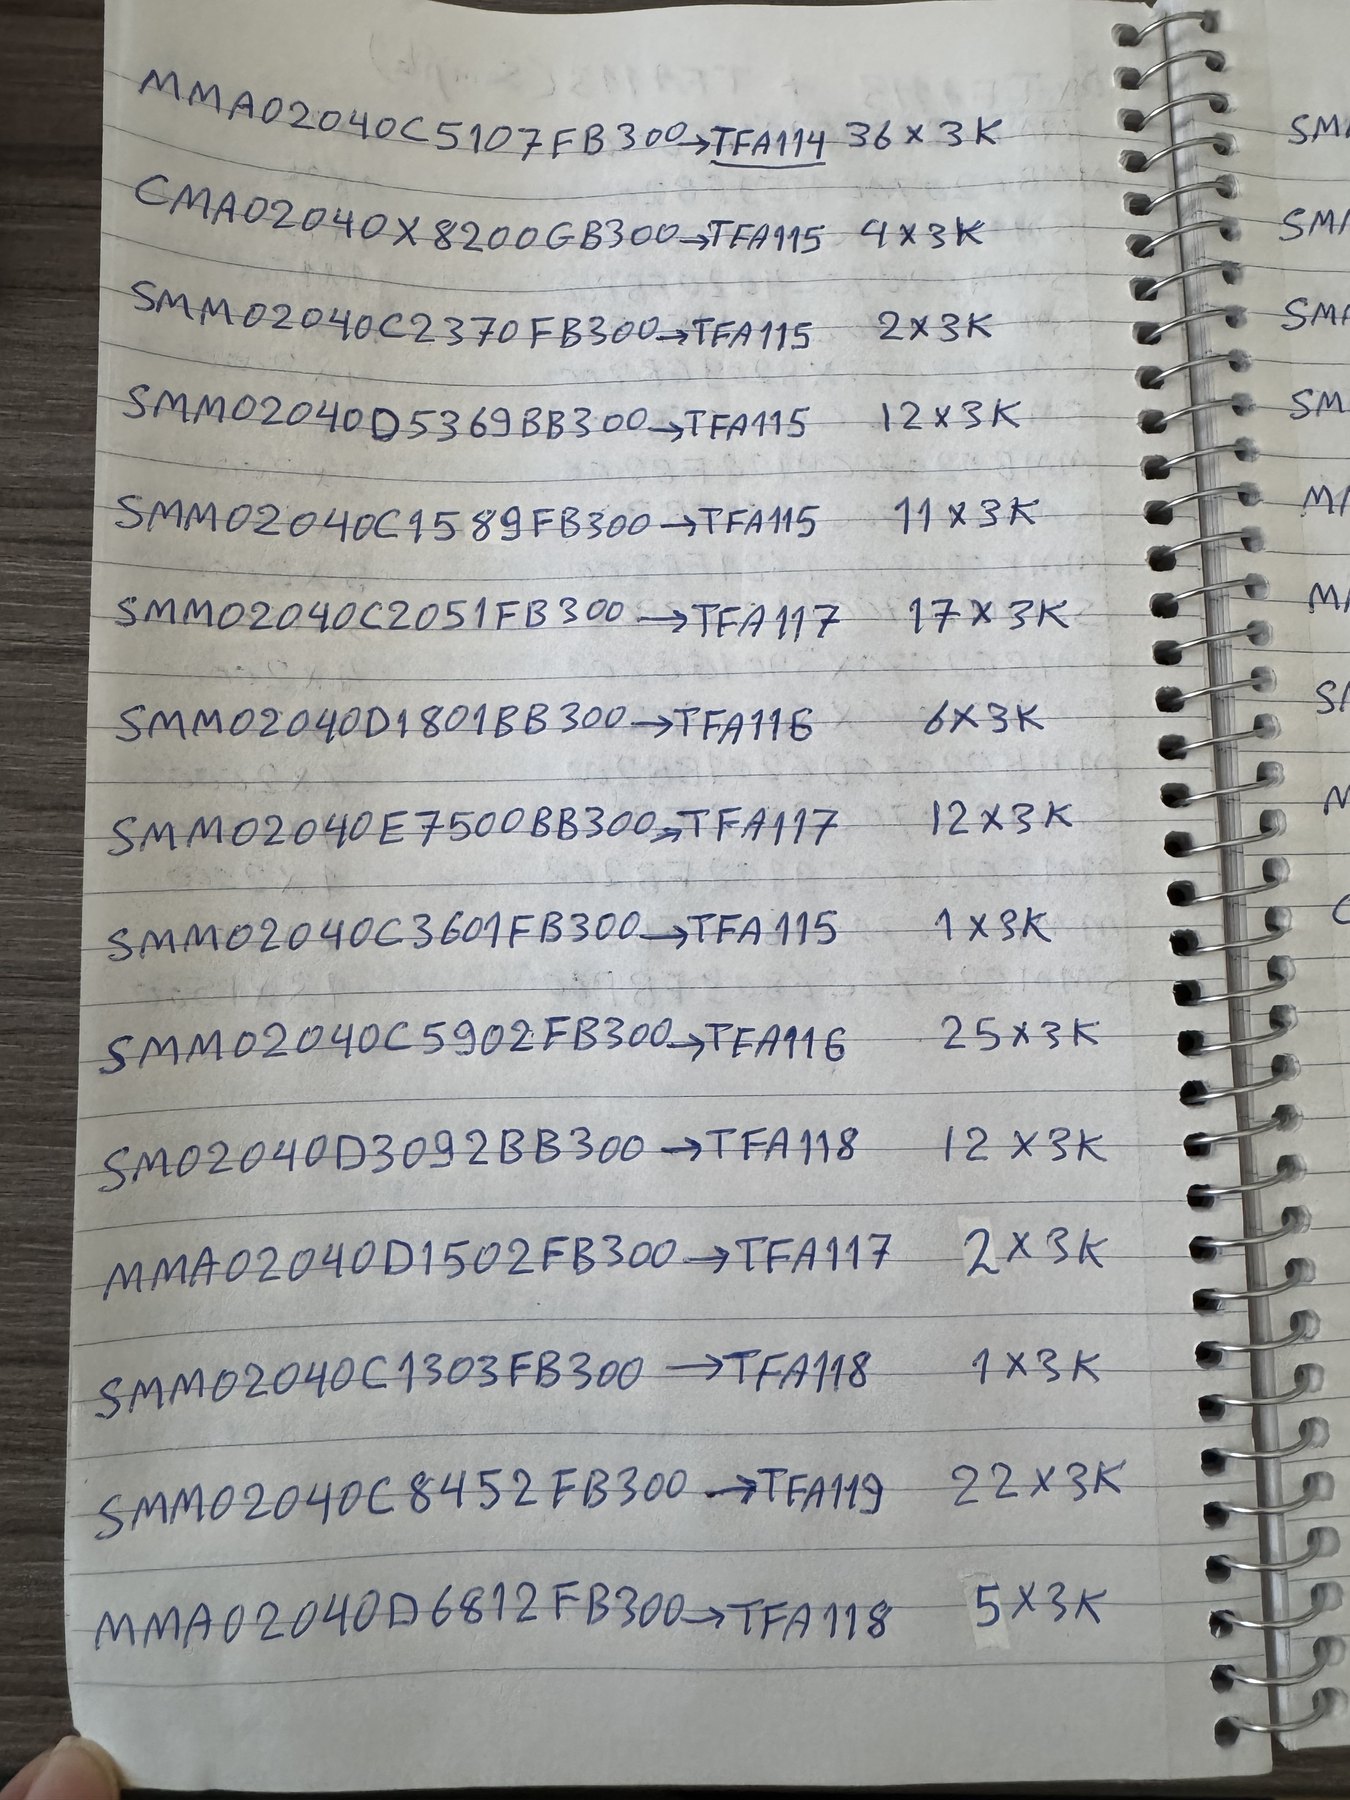 MMA02040C5107FB300→TFA114 36×3K
CMA02040X8200GB300→TFA115 4×3K
SMM02040C2370FB300→TFA115 2×3K
SMM02040D5369BB300→TFA115 12×3K
SMM02040C1589FB300→TFA115 11×3K
SMM02040C2051FB300→TFA117 17×3K
SMM02040D1801BB300→TFA116 6×3K
SMM02040E7500BB300→TFA117 12×3K
SMM02040C3601FB300→TFA115 1×3K
SMM02040C5902FB300→TFA116 25×3K
SM02040D3092BB300→TFA118 12×3K
MMA02040D1502FB300→TFA117 2×3K
SMM02040C1303FB300→TFA118 1×3K
SMM02040C8452FB300→TFA119 22×3K
MMA02040D6812FB300→TFA118 5×3K